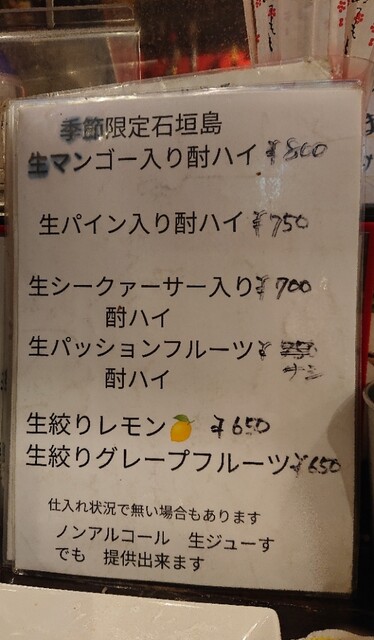 季節限定石垣島
生マンゴー入り酎ハイ ¥800
生パイン入り酎ハイ ¥750
生シークァーサー入り ¥700
酎ハイ
生パッションフルーツ ¥
酎ハイ ナシ
生絞りレモン🍋 ¥650
生絞りグレープフルーツ ¥650
仕入れ状況で無い場合もあります
ノンアルコール 生ジューす
でも 提供出来ます